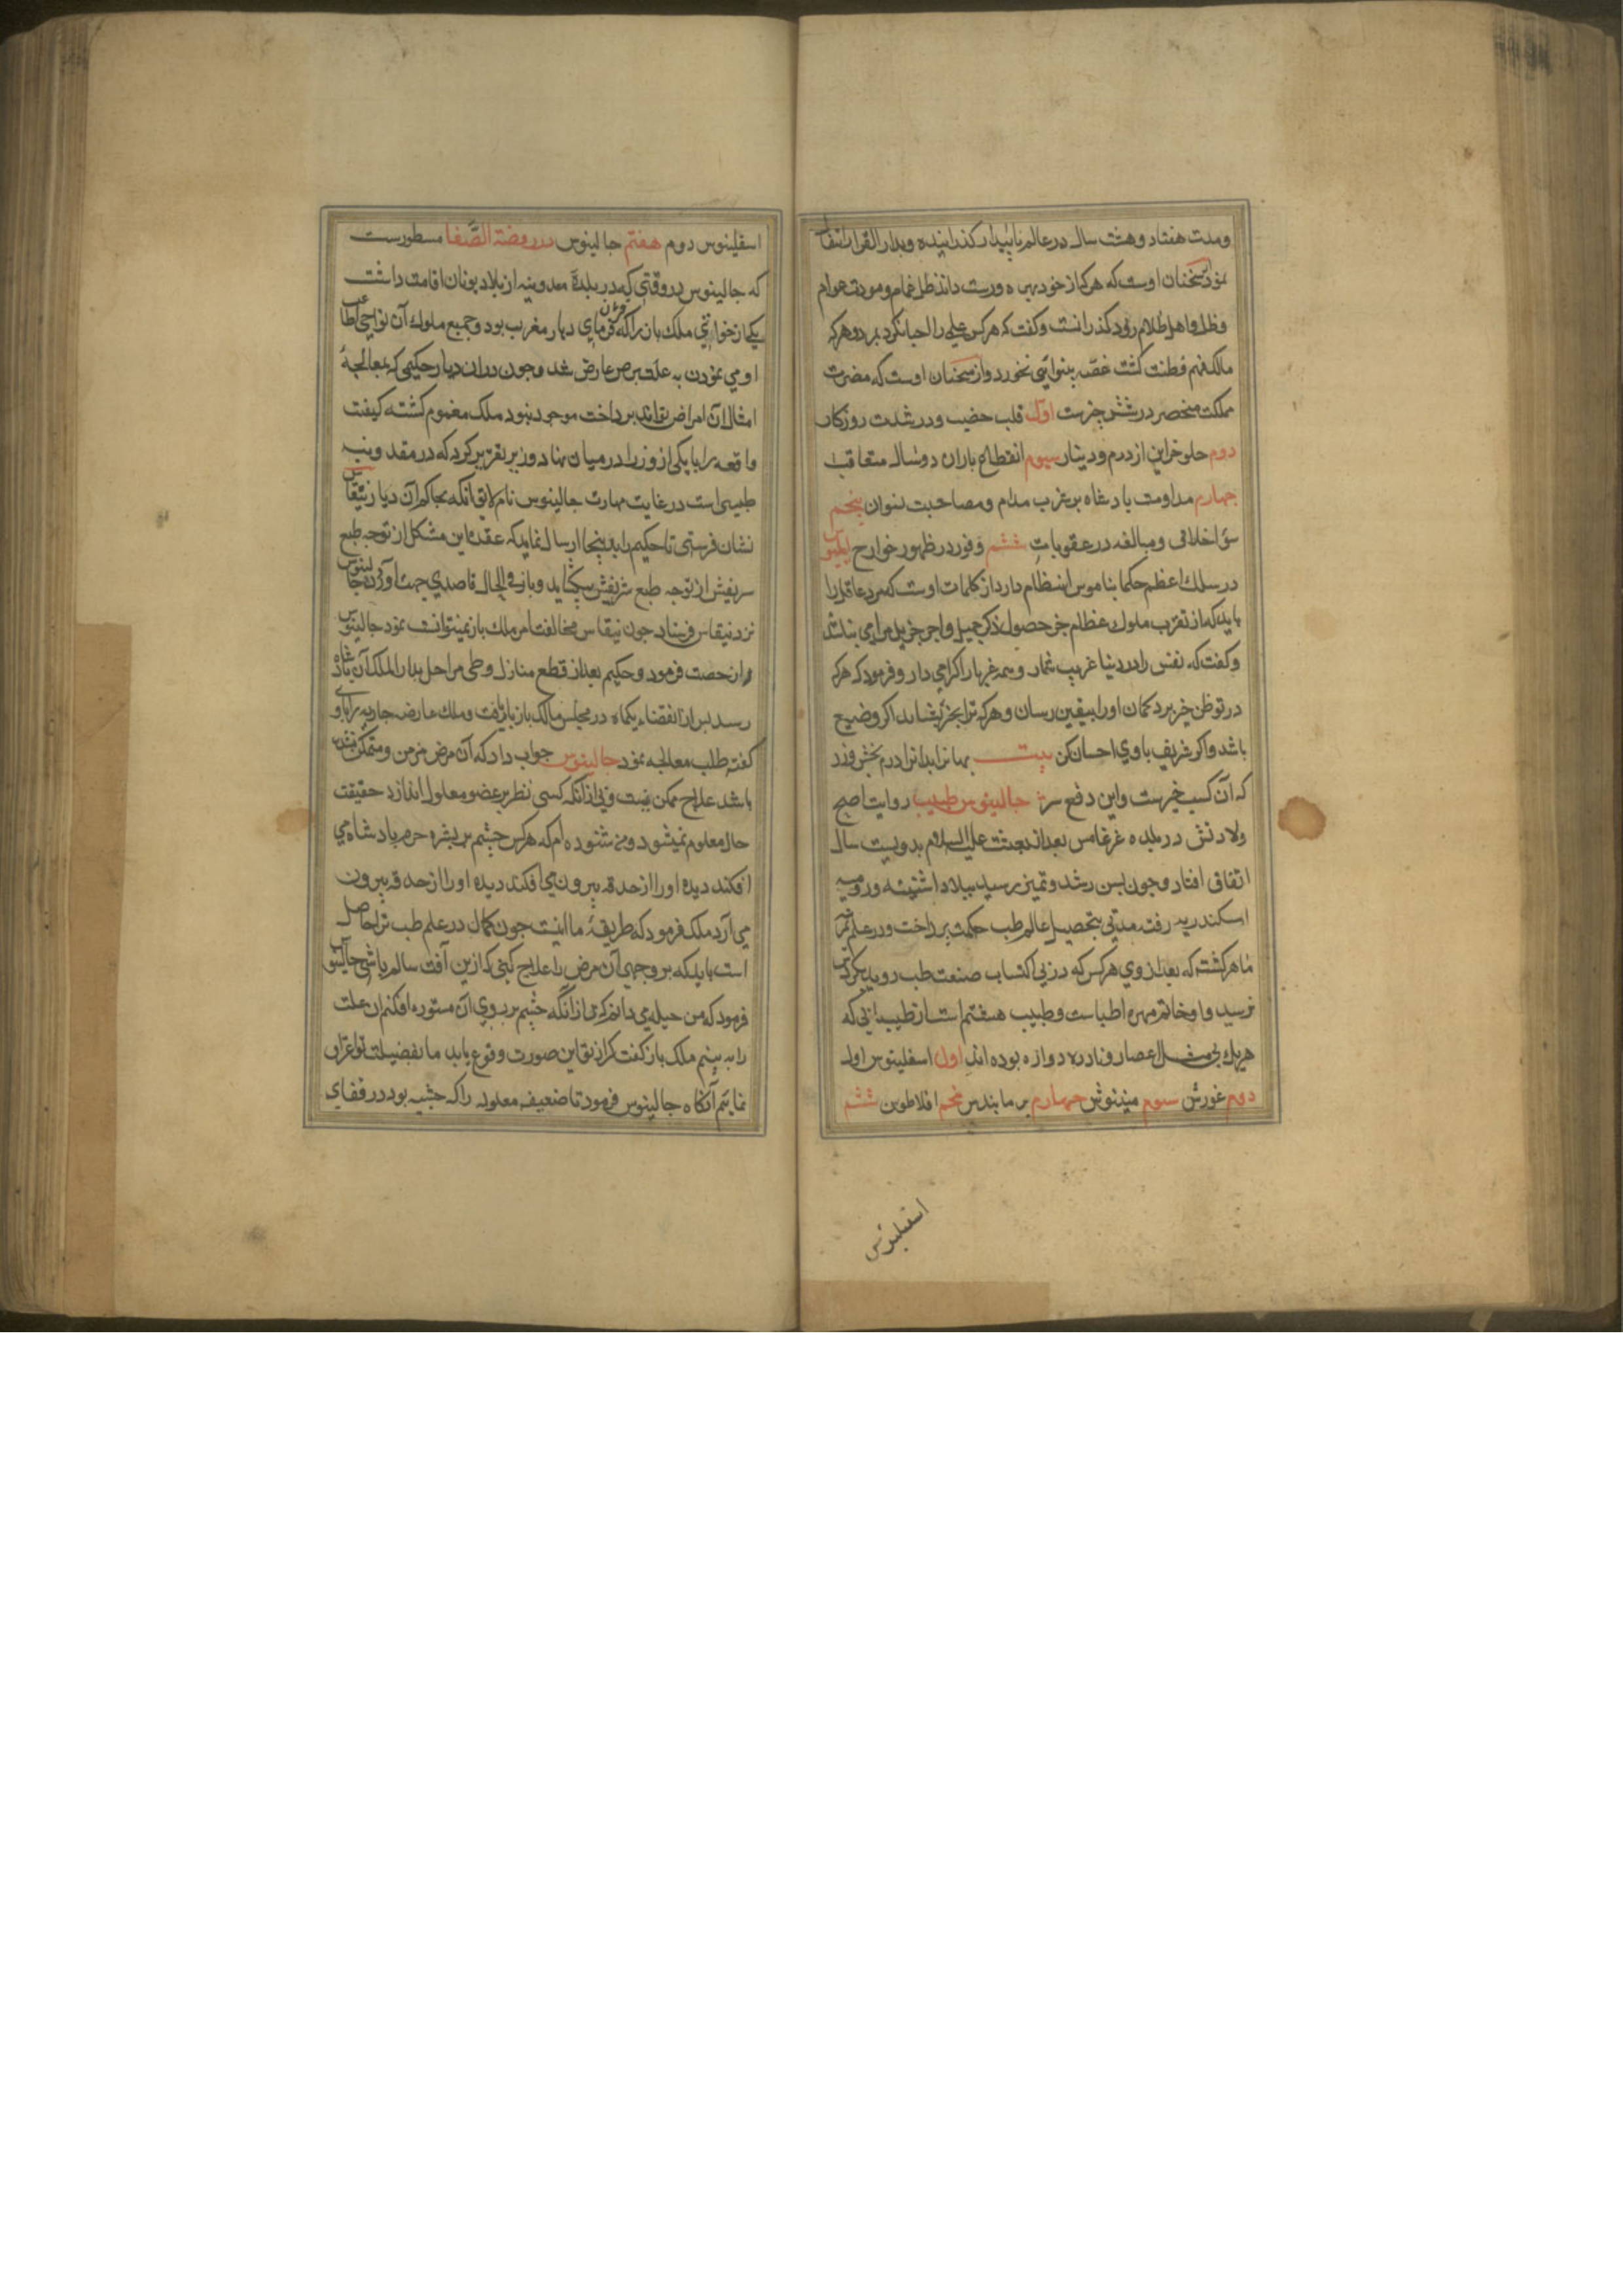 ومدت هفتاد وهشت سال در عالم ناپایدار کذرانیده وبدار القرار انتقال
نمود از سخنان اوست که هر که از خود بهره ورست داند ظل غمام ومودت عوام
وظل واهل ظلام زود کذرانست وکفت که هرکس علی را احیا نکرد بمرد وهرکه
مالک فهم وفطنت کشت غصه بینوایی نخورد واز سخنان اوست که مضرت
مملکت منحصر در شش چیزست اول قلب خصیب ودر شدت روزکار
دوم خلو خزاین از درم ودینار سیوم انقطاع باران دو سال متعاقب
چهارم مداومت پادشاه بر شرب مدام ومصاحبت نسوان پنجم
سؤ اخلاق ومبالغه در عقوبات ششم وفور در ظهور خوارج
در سلک اعظم حکما بناموس انتظام دارد از کلمات اوست که مرد عاقل را
باید که از تقرب ملوک عظام جز حصول ذکر جمیل واجر جزیل مرامی نباشد
وکفت که نفس را در دنیا غریب شمار وهمه غربا را کرامی دار وفرمود که هرکه
در تو ظن خیر برد کمان او را بیقین رسان وهرکه ترا بخیر بشاند اکر وضیع
باشد واکر شریف با وی احسان کن بیت بها نرا بدانرا درم بخش وزر
که آن کسب خیرست واین دفع شر جالینوس طبیب روایت اصح
ولادتش در بلده غرغامس بعد از بعثت علیه السلام بدویست سال
اتفاق افتاد وچون بسن رشد وتمیز رسید ببلاد اشنینه ورومیه
اسکندریه رفت مدتی بتحصیل عالم طب حکمت پرداخت ودر علم
ماهر کشت که بعد از وی هرکس که در پی اکتساب صنعت طب روید بکرد
نرسید واو خاتم مهره اطباست وطبیب هفتم است از طبیبانی که
هریک بی مثل اعصار ونادره دوازه بوده اند اول اسقلینوس اول
دوم غورش سیوم مینوش چهارم برمانیدس پنجم افلاطون ششم
اسقلینوس
اسقلینوس دوم هفتم جالینوس در روضة الصفا مسطورست
که جالینوس در وقتی که در بلدة مقدونیه از بلاد یونان اقامت داشت
یکی از خواتین ملک باز را که فرمان فرمای دیار مغرب بود وجمیع ملوک آن نواحی اطاعت
او می نمودن به علت برص عارض شد وچون دران دیار حکیمی که بمعالجة
امثال آن امراض تواند پرداخت موجود نبود ملک مغموم کشته کیفیت
واقعه را با یکی از وزرا در میان نهاد وزیر تقریر کرد که در مقدونیه
طبیبی است در غایت مهارت جالینوس نام لایق آنکه بحاکم آن دیار نیقاس
نشان فرستی تا حکیم را بدینجا ارسال نماید که عقدة این مشکل از توجه طبع
شریفش از توجه طبع شریفش بکشاید وباز فی الحال قاصدی جهت آوردن جالینوس
نزد نیقاس فرستاد چون نیقاس مخالفت امر ملک باز نمیتوانست نمود جالینوس
را رخصت فرمود وحکیم بعد از قطع منازل وطی مراحل بدار الملک آن پادشاه
رسید پس از انقضاء یکماه در مجلس مالک باز باریافت وملک عارضه جاریه را با او
کفته طلب معالجه نمود جالینوس جواب داد که آن مرض مزمن ومتمکن نشده
باشد علاج ممکن نیست وپی ازانکه کسی نظر بر عضو معلول اندازد حقیقت
حال معلوم نمیشود ومن شنوده ام که هرکس چشم بر بشره حرم پادشاه می
افکند دیده او را از حدقه بیرون می افکند دیده او را از حدقه بیرون
می آرد ملک فرمود که طریقة ما اینست چون کمال در علم طب ترا حاصل
است باید که بر وجهی آن مرض را علاج کنی که ازین آفت سالم باشی جالینوس
فرمود که من حیله می دانم که بی ازانکه چشم بر روی آن مستوره افکنم ان علت
را به بینم ملک باز کفت کر از تو این صورت وقوع یابد ما بفضیلت تو اعتراف
نمایم آنکاه جالینوس فرمود تا ضعیفه معلوله را که حبشیه بود در قفای